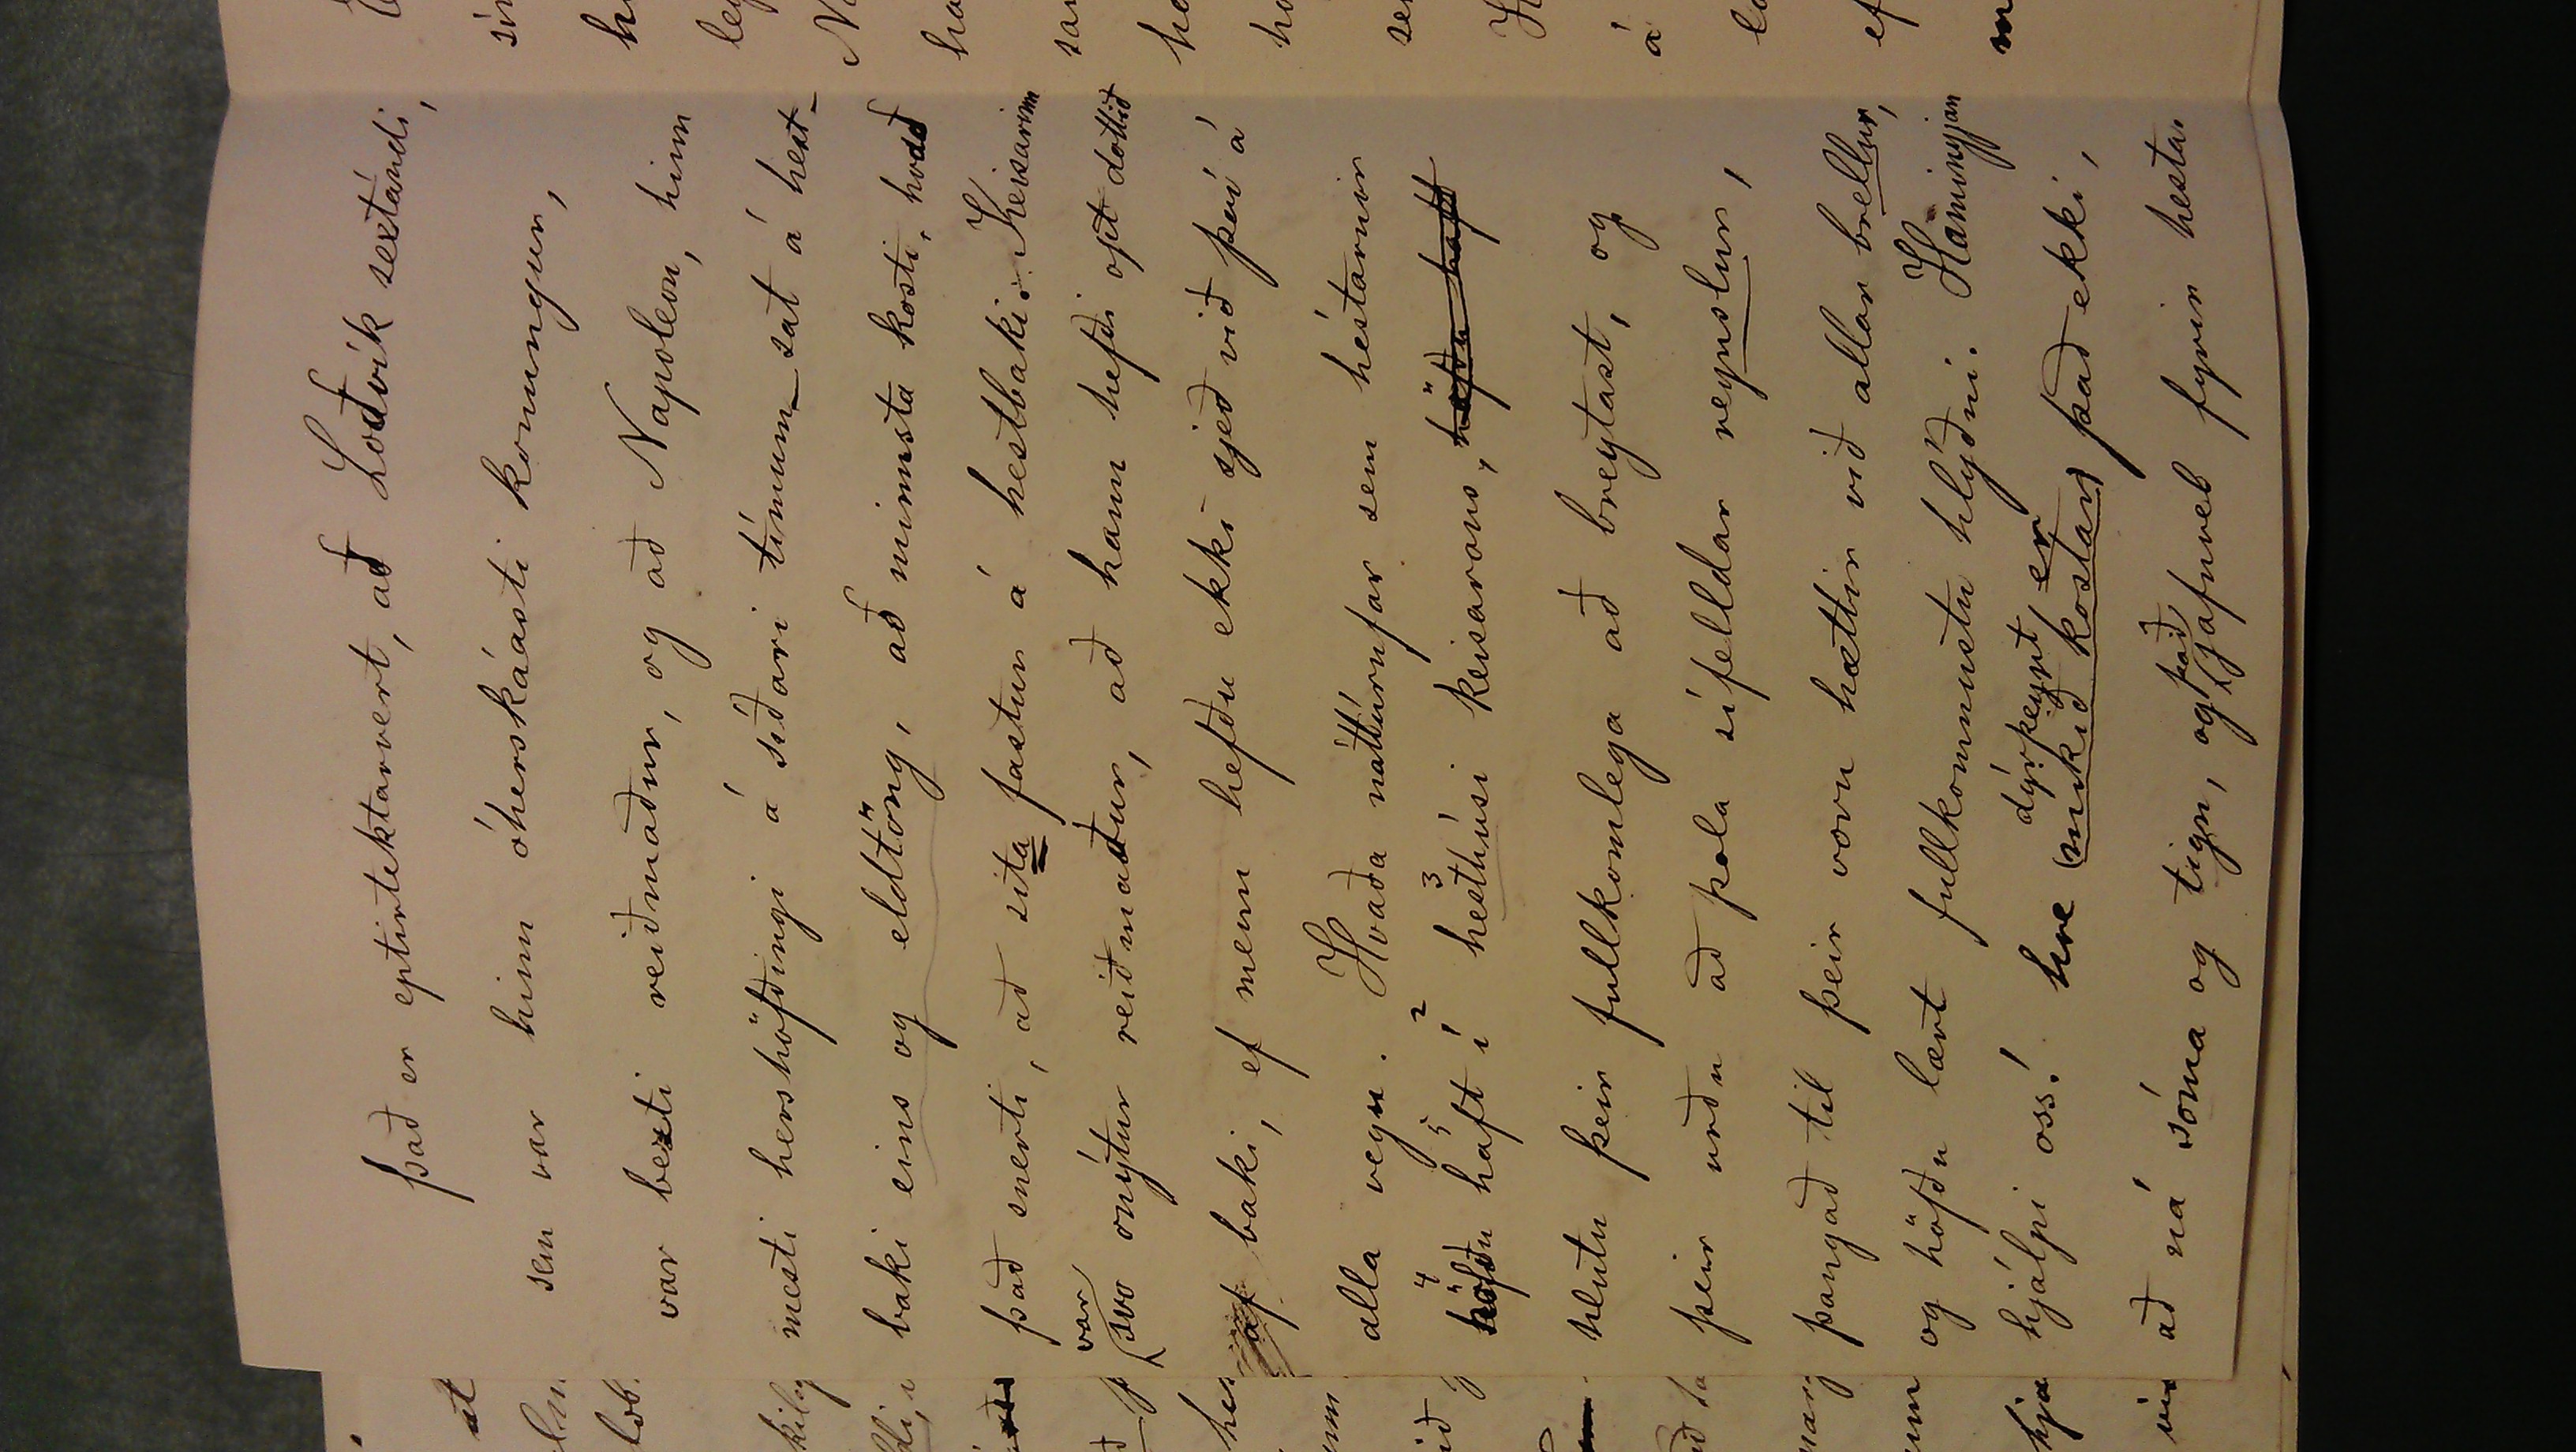 það er eptirtektarvert, að Loðvík sextándi,
sem var hinn óherskáasti konungur,
var bezti reiðmaður, og að Napoleon, hinn
mesti hershöfðingi á síðari tímum_ sat á hest_
baki eins og eldtöng, að minnsta kosti, hvað
það snerti, að sita fastur á hestbaki. Keisarinn
var
svo ónýtur reiðmaður, að hann hefði opt dottið
af baki, ef menn hefðu ekki sjeð við því á
alla vegu. Hvaða náttúrufar sem hestarnir
4 5 2 3
höfðu haft í hesthúsi keisarans, höfðu haft
hlutu þeir fullkomlega að breytast, og
þeir urðu að þola sífelldar reynslur,
þangað til þeir voru hættir við allar brellur,
og höfðu lært fullkomnustu hlýðni. Hamingjan
dýrkeypt er
hjálpi oss! hve (mikið kostar) það ekki,
það
að ná sóma og tign, og jafnvel fyrir hesta.